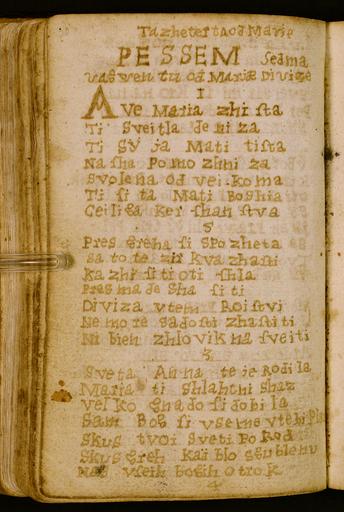 Tazhetertaod Marie
PESSEM sedma
vas ven tu od Mariæ Divize
I
Ave Maria zhista
Ti Sveitla deniza
Ti sy ja Mati tista
Nasha Pomozhniza
Svolena od veikoma
Ti si ta Mati Boshia
Ceiliga kershanstva
Pres greha si spozheta
sa to te sir kva zhasti
Kazhi si ti oti shla
Presma de sha si ti
Diviza vtem Roistvi
Nemore sadosti zhastiti
Ni bien zhlovik na sveiti
3
Sveta Anna te je Rodila
Maria ti shlahtni shaz
velko gnado si dobila
Sam Bog si vseme vtebi
Skus tvoi sveti Porod
Skus greh kai blo sgublenu
vseih bogih otrok
4